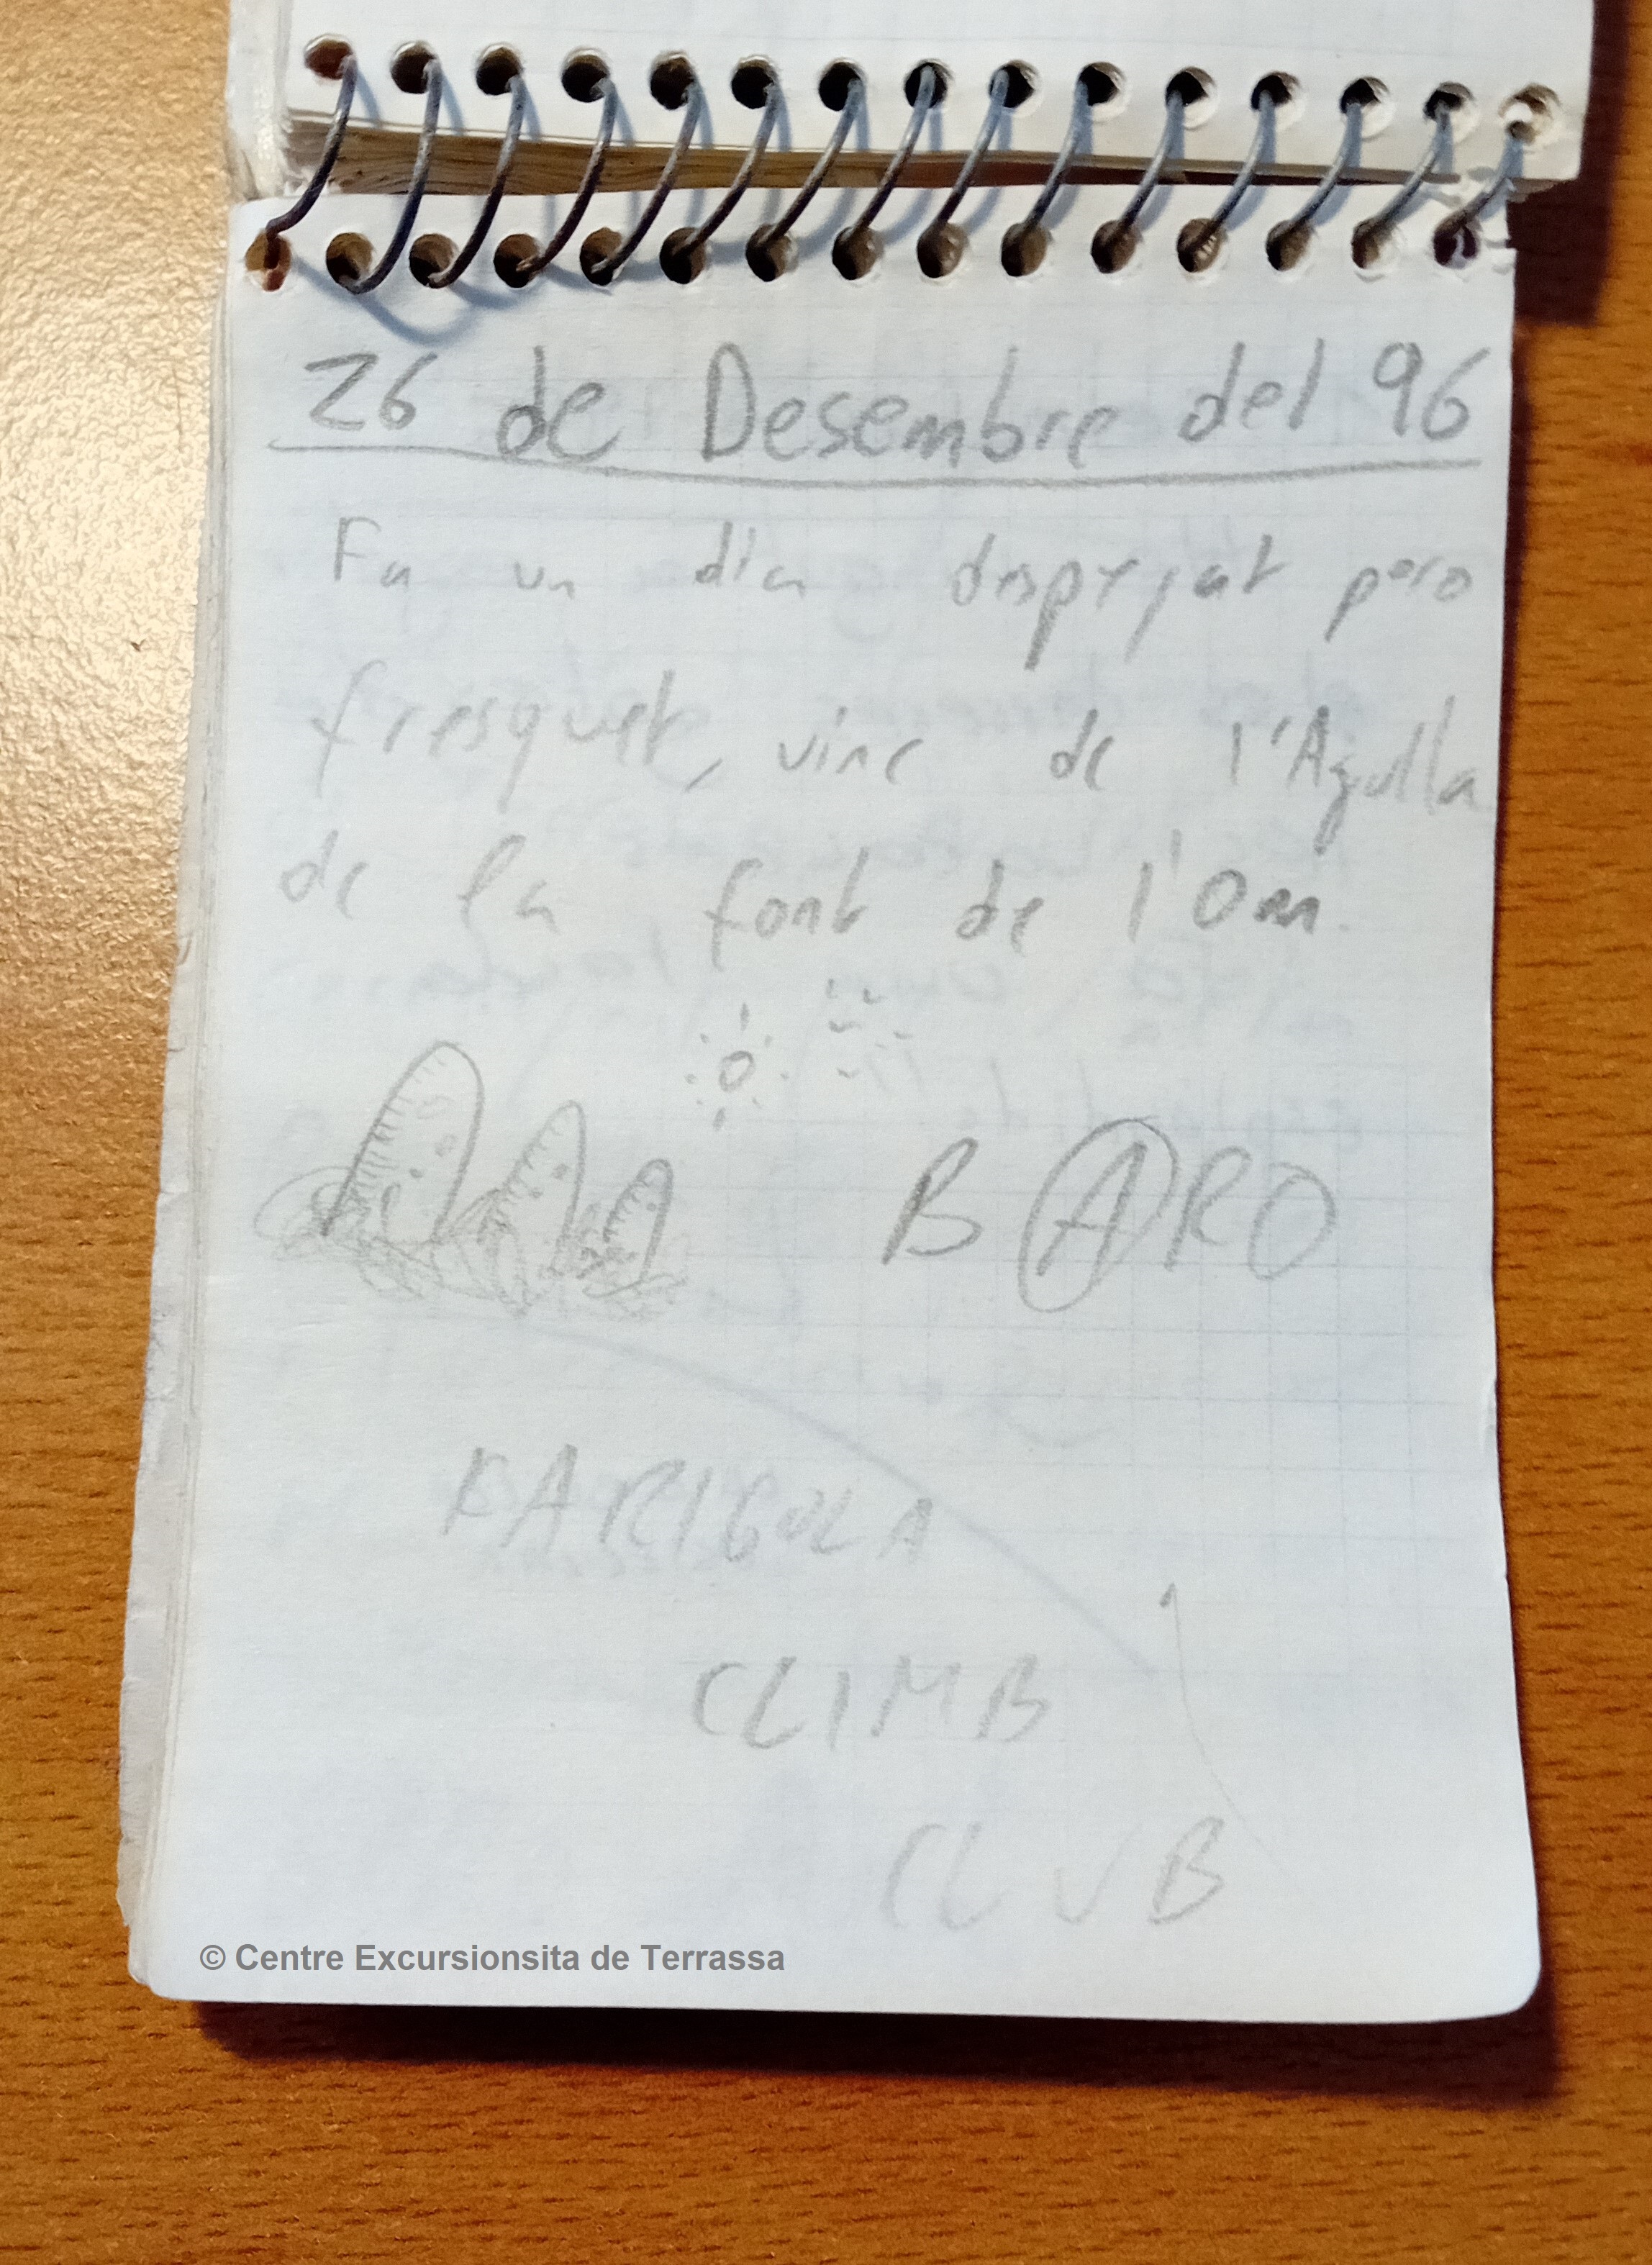 26 de Desembre del 96
Fa un dia despejat pero
fresquet, vinc de l'Agulla
de la font de l'Om.
BARO
FARIGOLA
CLIMB
CLUB
© Centre Excursionsita de Terrassa